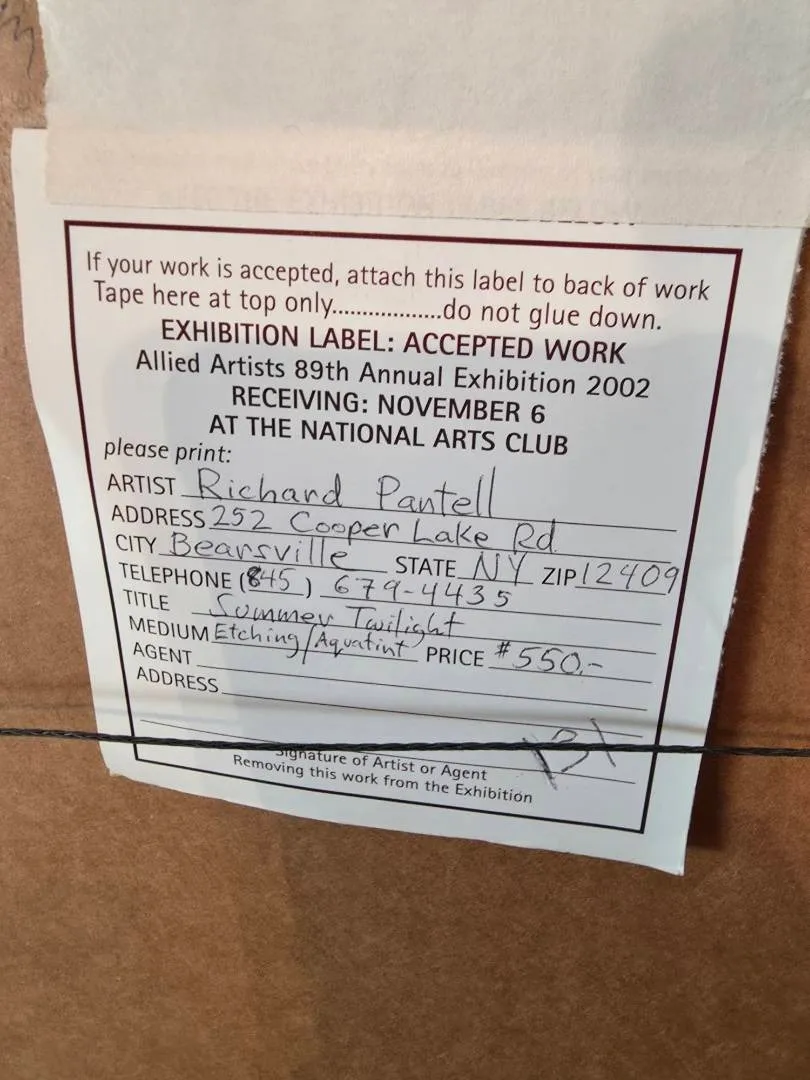 If your work is accepted, attach this label to back of work
Tape here at top only..................do not glue down.
EXHIBITION LABEL: ACCEPTED WORK
Allied Artists 89th Annual Exhibition 2002
RECEIVING: NOVEMBER 6
AT THE NATIONAL ARTS CLUB
please print:
ARTIST Richard Pantell
ADDRESS 252 Cooper Lake Rd
CITY Bearsville STATE NY ZIP 12409
TELEPHONE (845) 679-4435
TITLE Summer Twilight
MEDIUM Etching/Aquatint PRICE #550.-
AGENT
ADDRESS
Signature of Artist or Agent
Removing this work from the Exhibition